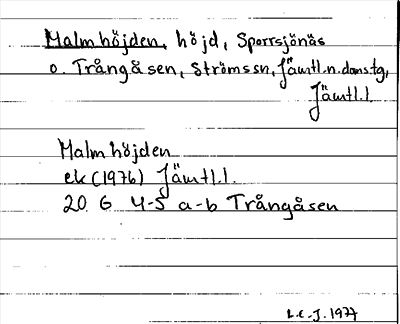 Malmhöjden, höjd, Sporrsjönäs
o. Trångåsen, Strömssn, Jämtl.n.domstg,
Jämtl.l.
Malmhöjden
ek (1976) Jämtl.l.
20 G 4-5 a-b Trångåsen
L.E.-J. 1977